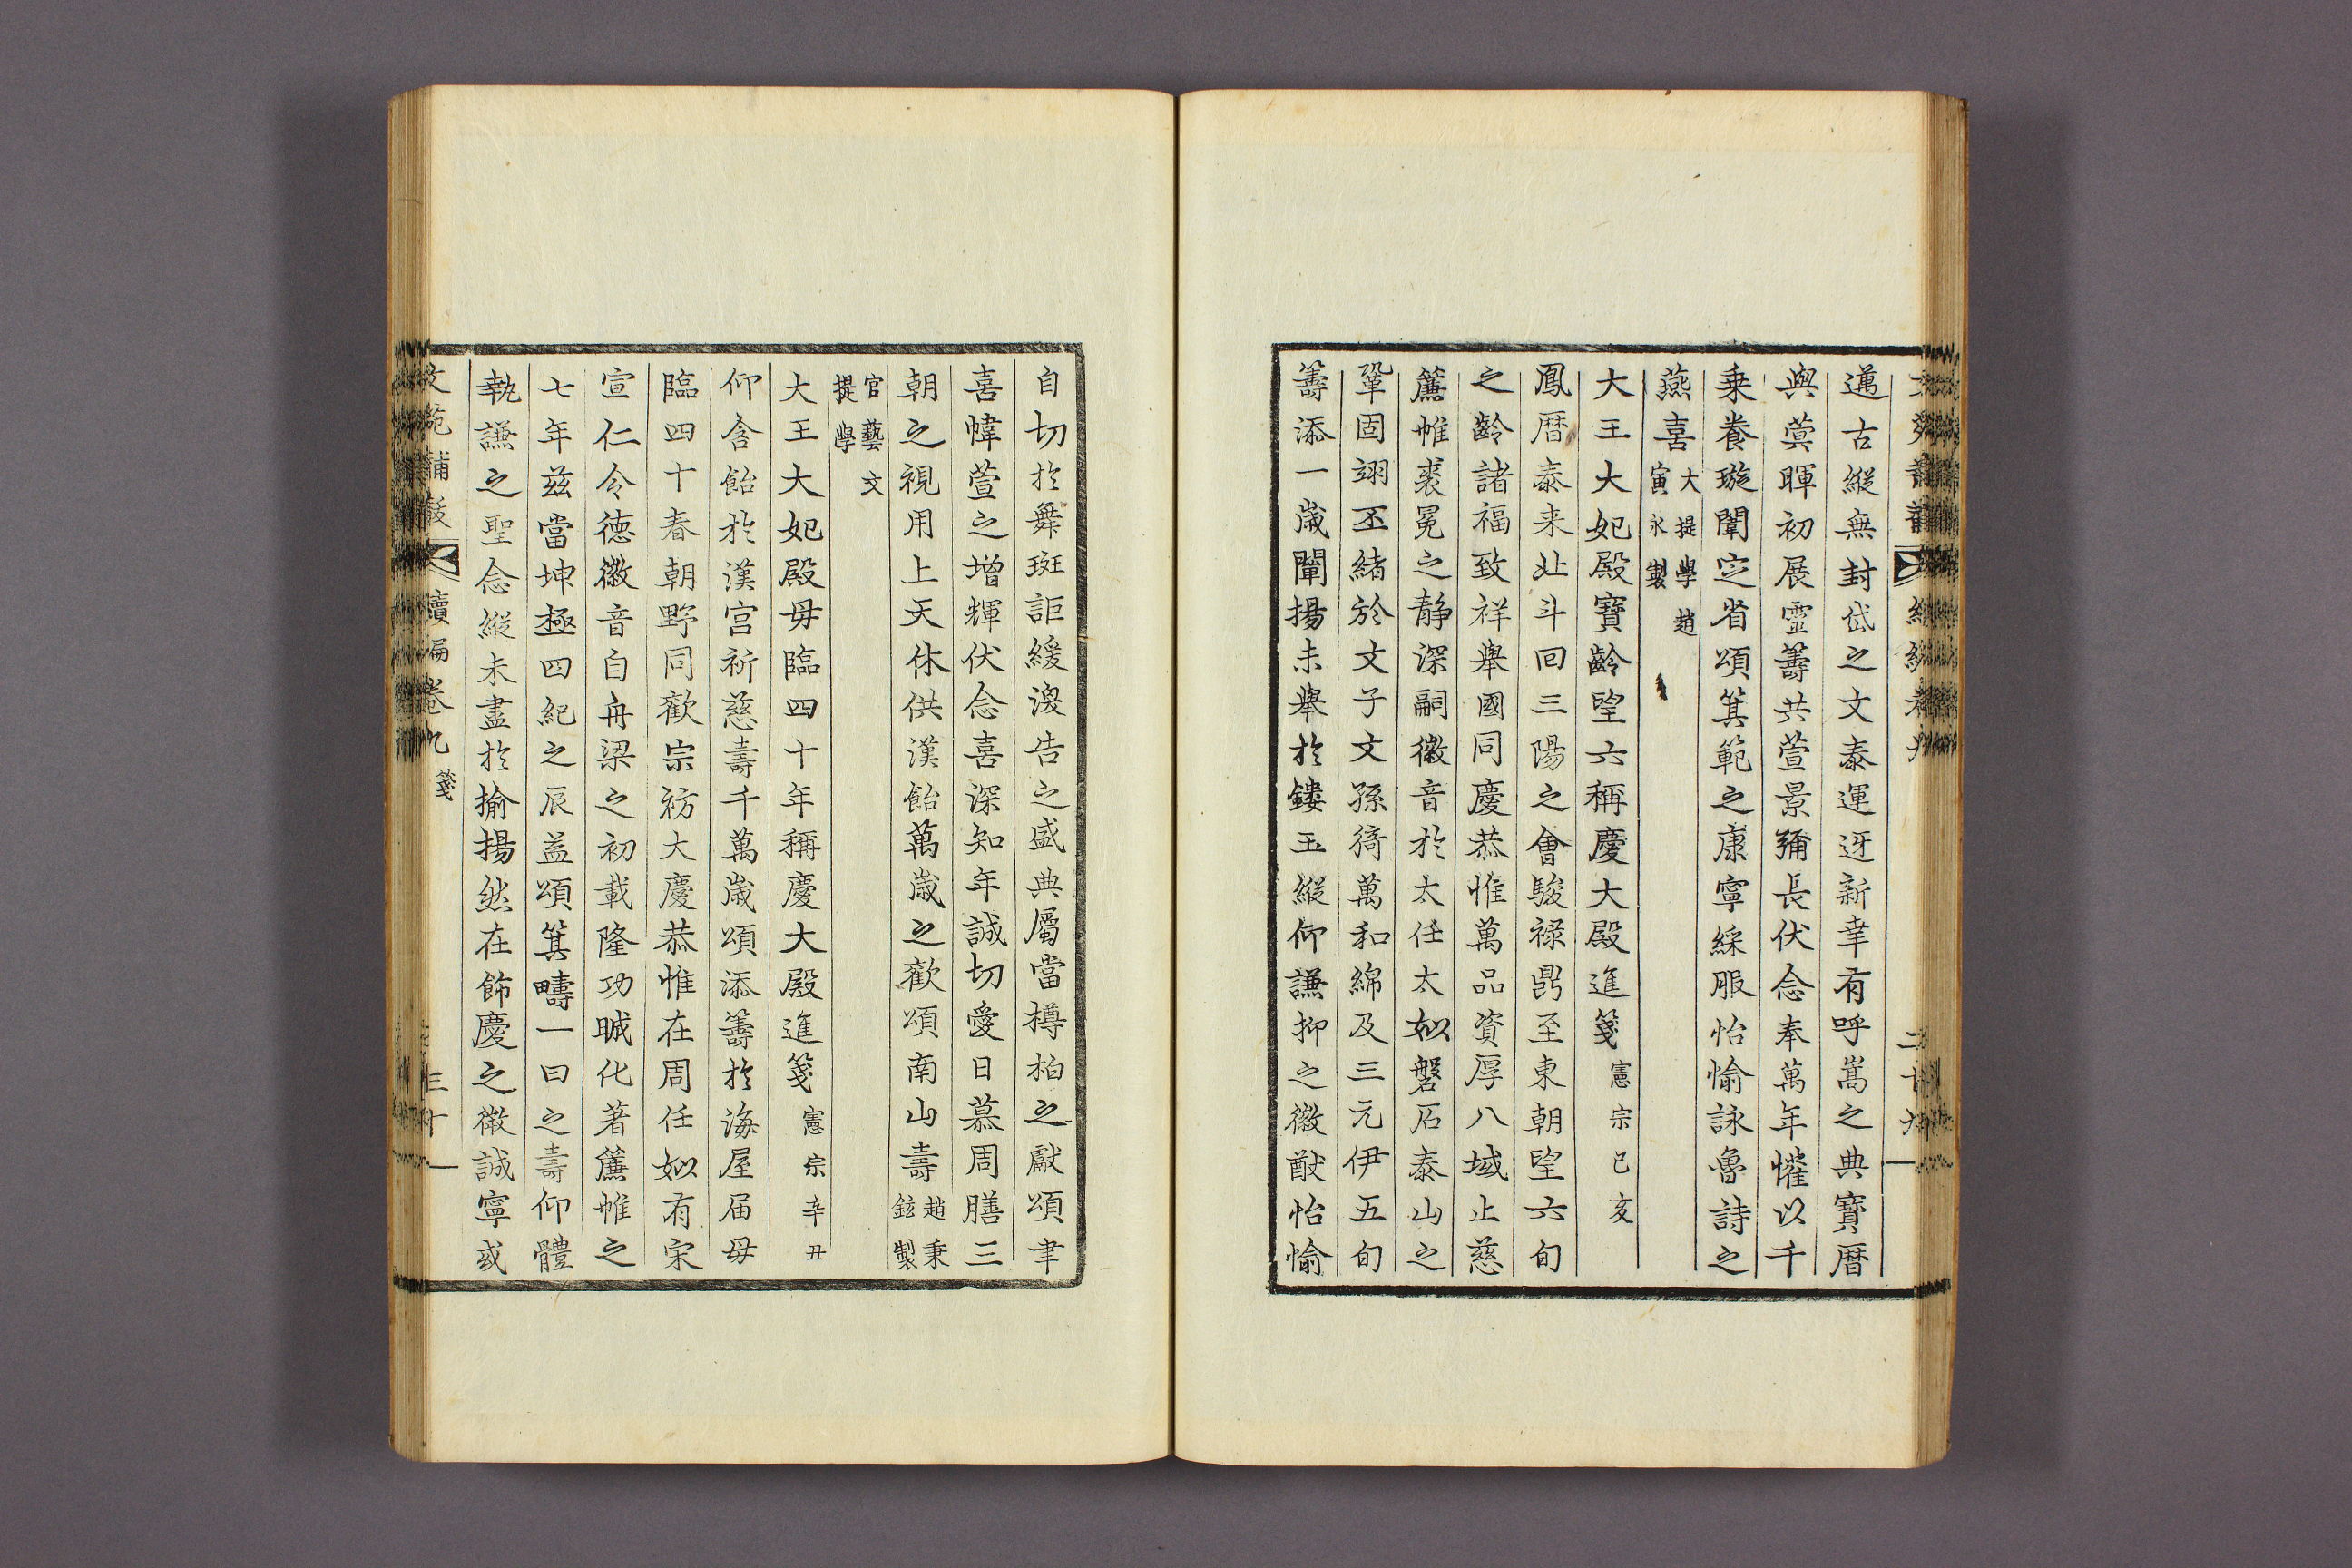 邁古縱無封岱之文泰運迓新幸有呼嵩之典寶曆
與蓂暉初展靈籌共萱景彌長伏念奉萬年懽以千
乗養璇闈定省頌箕範之康寧綵服怡愉詠魯詩之
燕喜 大提學趙
寅永製
大王大妃殿寶齡望六稱慶大殿進箋 憲宗己亥
鳳曆泰来北斗回三陽之會駿禄鼎至東朝望六旬
之齡諸福致祥舉國同慶恭惟萬品資厚八域止慈
簾帷裘冕之静深嗣徽音於太任太姒磐石泰山之
鞏固翊丕緒於文子文孫猗萬和綿及三元伊五旬
籌添一歳闡揚未舉於鏤玉縱仰謙抑之徽猷怡愉
自切於舞斑詎緩渙告之盛典屬當樽柏之獻頌聿
喜幃萱之增輝伏念喜深知年誠切愛日慕周膳三
朝之視用上天休供漢飴萬歳之歡頌南山壽 趙秉
鉉製
官藝文
提學
大王大妃殿毋臨四十年稱慶大殿進箋 憲宗辛丑
仰含飴於漢宫祈慈壽千萬歳頌添籌於海屋届毋
臨四十春朝野同歡宗祊大慶恭惟在周任姒有宋
宣仁令德徽音自舟梁之初載隆功晠化著簾帷之
七年兹當坤極四紀之辰益頌箕疇一曰之壽仰體
執謙之聖念縱未盡於揄揚然在飾慶之微誠寧或
文苑黼黻 續編卷九 箋 三十一